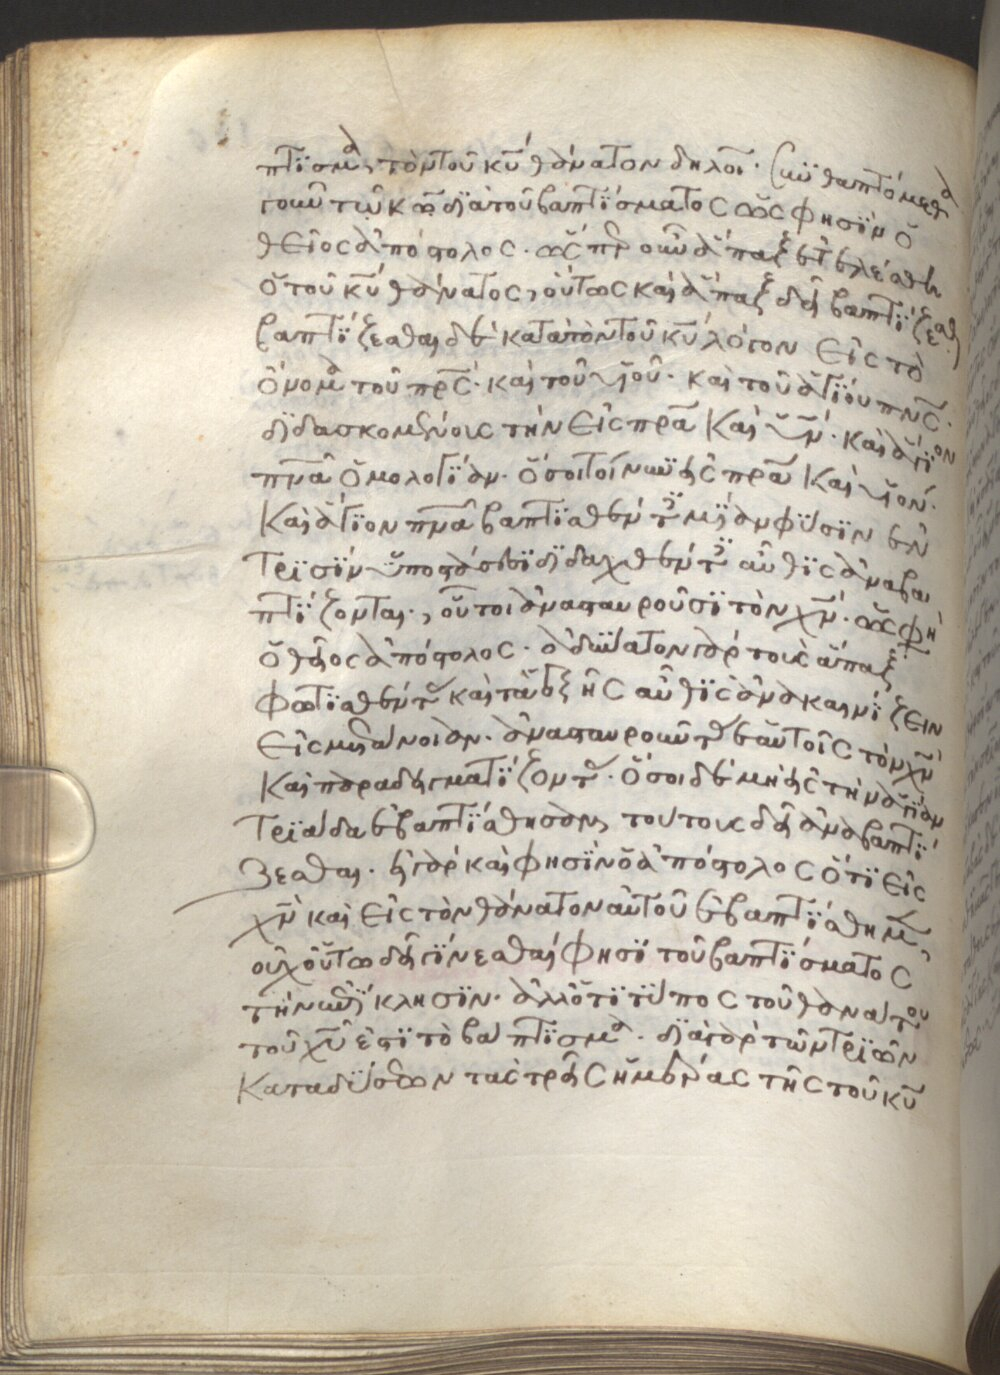 πτισμα, τὸν τοῦ κυ θάνατον δηλοῖ· Συνθαπτόμεθα
γοῦν τῶ κω διὰ τοῦ βαπτίσματος ὥς φησϊν ὁ
θεῖος ἀπόστολος· ὥσπερ οὖν ἅπαξ ἐτελέσθη
ὁ τοῦ κυ θάνατος, οὕτως καὶ ἅπαξ δεῖ βαπτίζεσθαι·
βαπτίζεσθαι δὲ κατὰ τὸν τοῦ κυ λόγον εἰς τὸ
ὄνομα τοῦ πρς· καὶ τοῦ υἱοῦ· καὶ τοῦ ἁγίου πνς·
διδασκομένοις τὴν εἰς πρα καὶ υν· καὶ ἅγιον
πνα ὁμολογίαν· ὅσοι τοίνυν εἰς πρα καὶ υἱόν·
καὶ ἅγιον πνα βαπτισθέντες μίαν φύσιν ἐν
τρισὶν ὑποστάσεσι διδαχθέντες αὖθις ἀναβα
πτίζονται, οὗτοι ἀνασταυροῦσι τὸν χν· ὥς φη
ὁ θεῖος ἀπόστολος· ἀδύνατον γὰρ τοὺς ἅπαξ
φωτισθέντας καὶ τὰ ἑξῆς αὖθις ἀνακαινίζειν
εἰς μετάνοιαν· ἀνασταυροῦντας ἑαυτοῖς τὸν χν
καὶ παραδειγματίζοντας· ὅσοι δὲ μὴ εἰς τὴν ἁγίαν
τριάδα ἐβαπτίσθησαν, τούτους δεῖ ἀναβαπτί
ζεσθαι· εἰ γὰρ καί φησιν ὁ ἀπόστολος ὅτι εἰς
χν καὶ εἰς τὸν θάνατον αὐτοῦ ἐβαπτίσθημεν,
οὐχ οὕτω δεῖ γίνεσθαί φησι τοῦ βαπτίσματος
τὴν ἐπίκλησιν· ἀλλ' ὅτι τύπος τοῦ θανάτου
τοῦ χυ ἐστὶ τὸ βάπτισμα· διὰ γὰρ τῶν τριῶν
καταδύσεων τὰς τρεῖς ἡμέρας τῆς τοῦ κυ